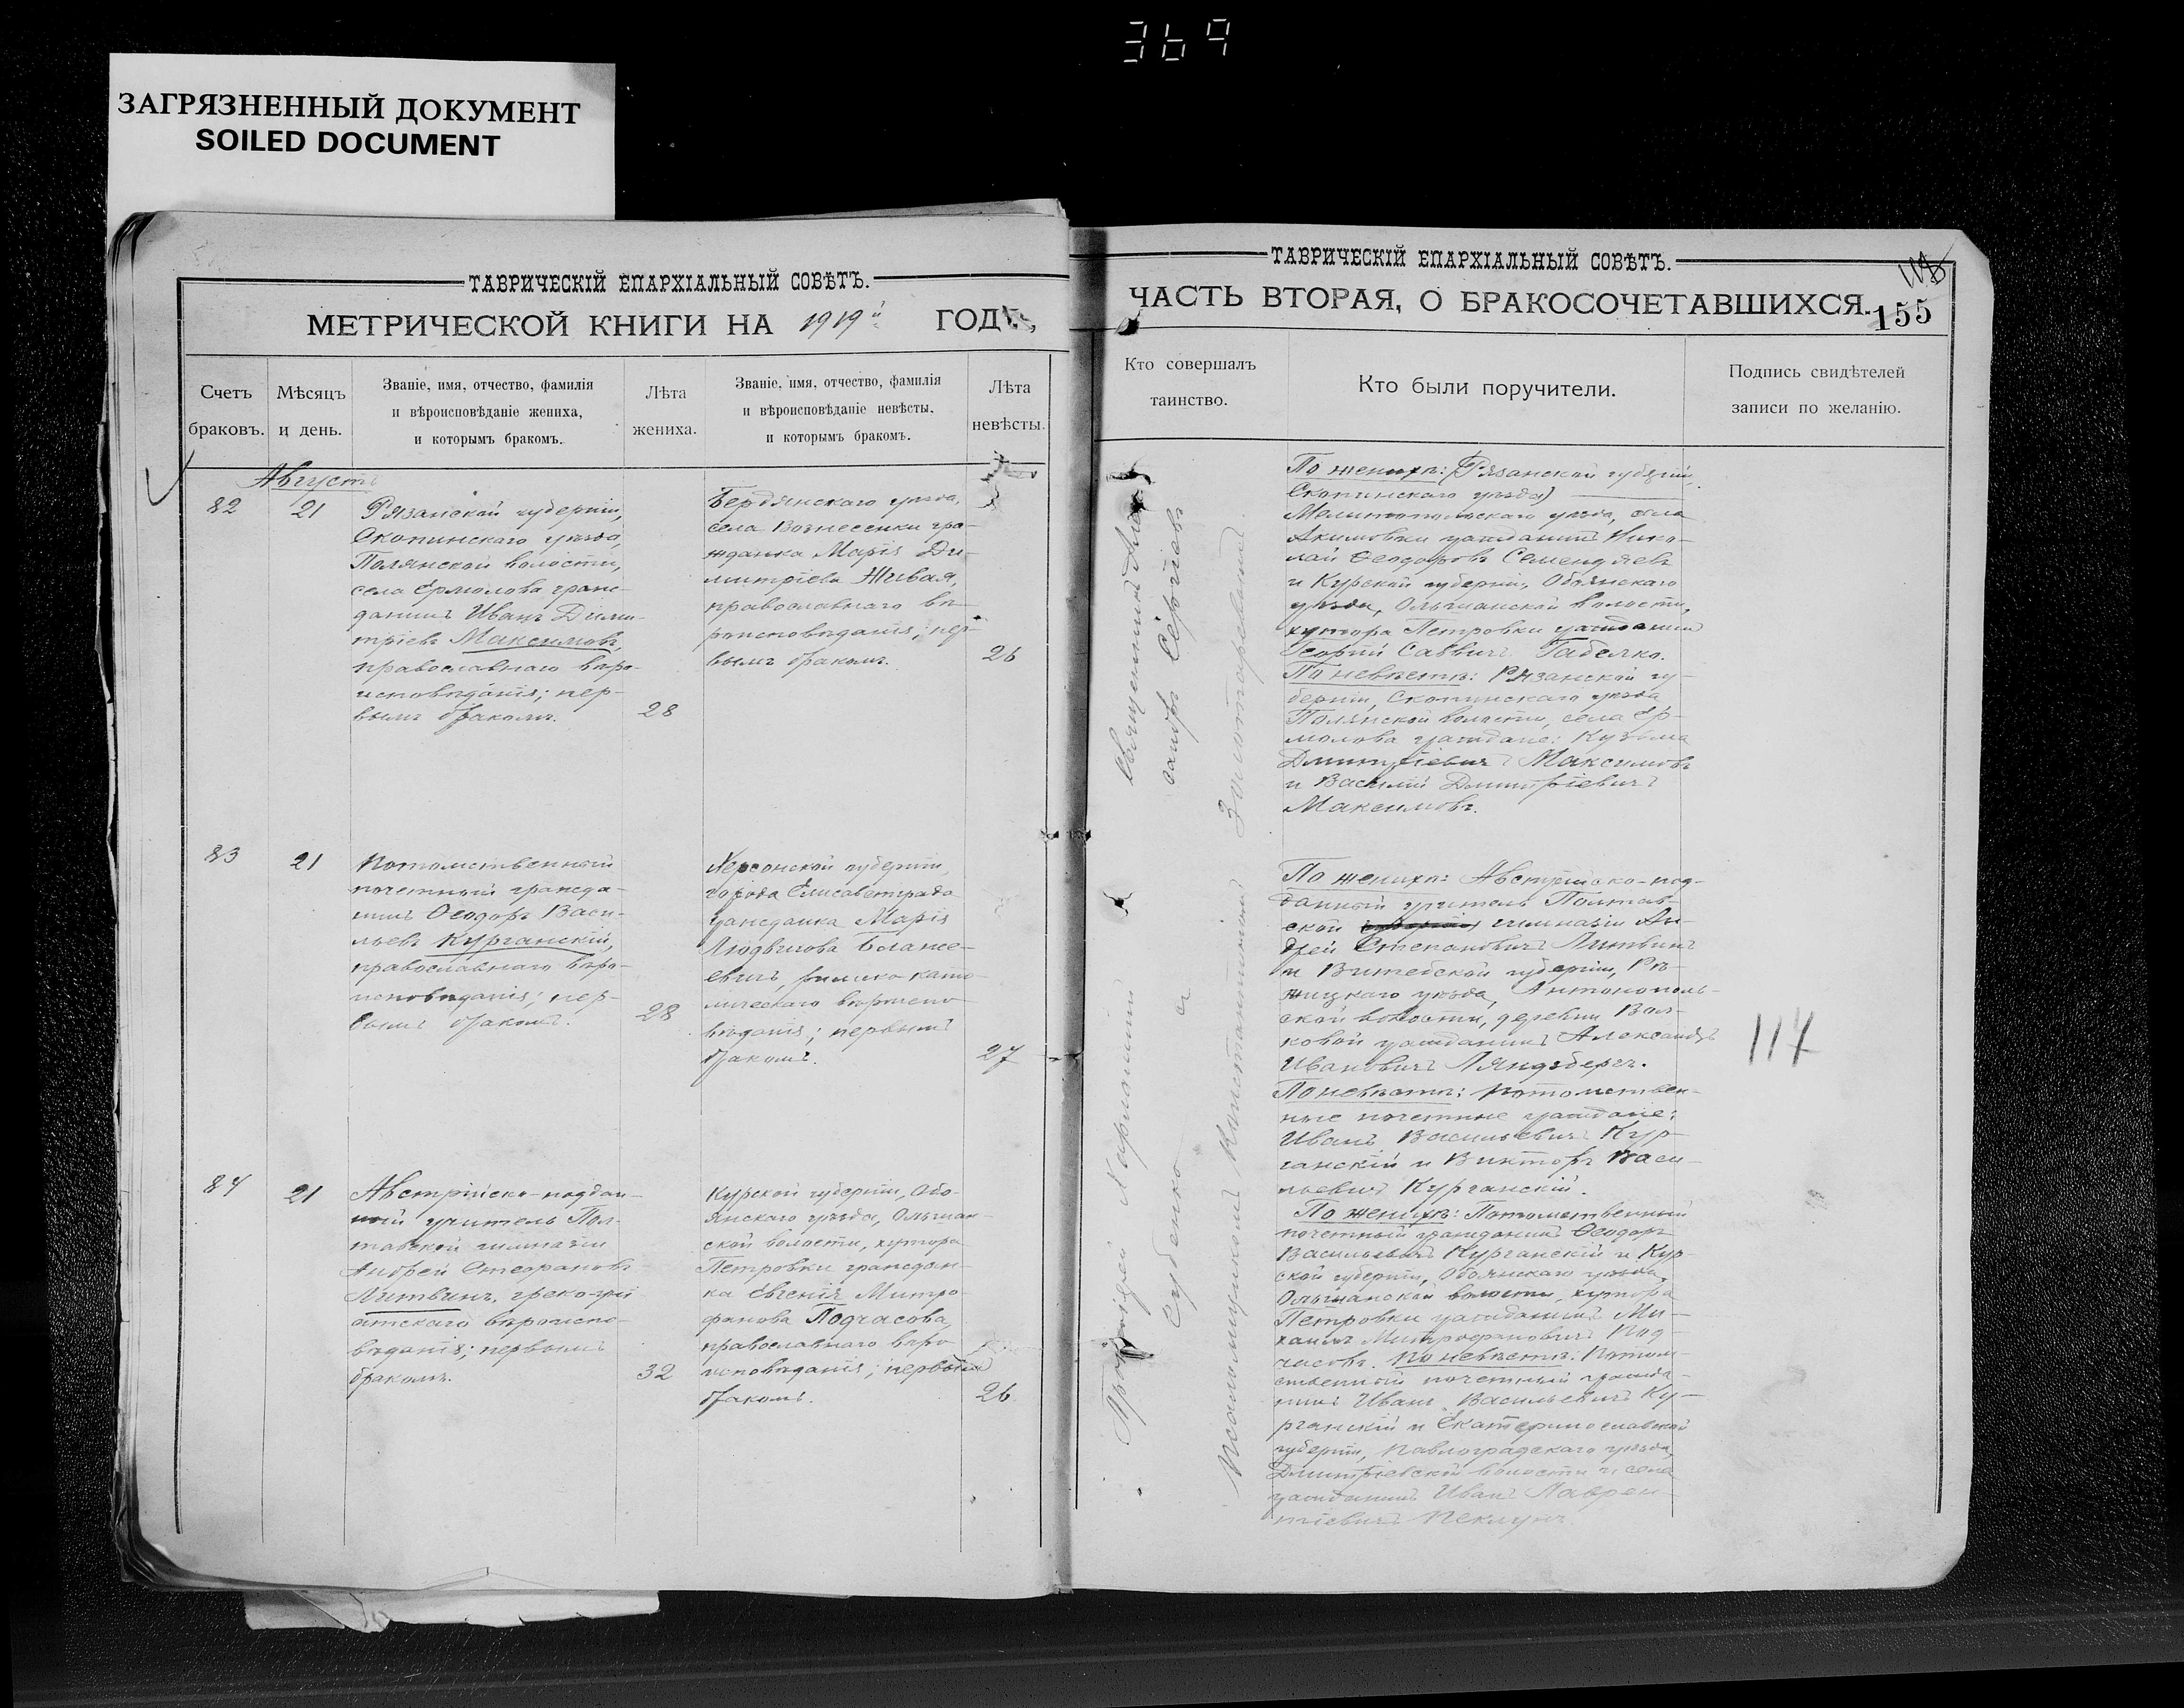 369
ЗАГРЯЗНЕННЫЙ ДОКУМЕНТ
SOILED DOCUMENT
ТАВРИЧЕСКІЙ ЕПАРХІАЛЬНЫЙ СОВѢТЪ.
МЕТРИЧЕСКОЙ КНИГИ НА 1919й ГОДЪ,
Счетъ браковъ.
Мѣсяцъ и день.
Званіе, имя, отчество, фамилія
и вѣроисповѣданіе жениха,
и которымъ бракомъ.
Лѣта жениха.
Званіе, имя, отчество, фамилія
и вѣроисповѣданіе невѣсты,
и которымъ бракомъ.
Лѣта невѣсты.
Августъ
82
21
Рязанской губерніи,
Скопинскаго уѣзда,
Полянской волости,
села Ермолова граж-
данинъ Иванъ Дими-
тріевъ Максимовъ,
православнаго вѣро-
исповѣданія; пер-
вымъ бракомъ.
28
Бердянскаго уѣзда,
села Вознесенки гра-
жданка Марія Ди-
митріева Живая,
православнаго вѣ-
роисповѣданія; пер-
вымъ бракомъ.
26
83
21
Потомственный
почетный гражда-
нинъ Ѳеодоръ Васи-
льевъ Курганскій,
православнаго вѣро-
исповѣданія; пер-
вымъ бракомъ.
28
Херсонской губерніи,
города Елисаветграда
гражданка Марія
Людвигова Блаже-
евичъ, римско-като-
лическаго вѣроиспо-
вѣданія; первымъ
бракомъ.
27
84
21
Австрійско-поддан-
ный учитель Пол-
тавской гимназіи
Андрей Стефановъ
Литвинъ, греко-уні-
атскаго вѣроиспо-
вѣданія; первымъ
бракомъ.
32
Курской губерніи, Обо-
янскаго уѣзда, Ольшан-
ской волости, хутора
Петровки граждан-
ка Евгенія Митро-
фанова Подчасова,
православнаго вѣро-
исповѣданія; первымъ
бракомъ.
26
ТАВРИЧЕСКІЙ ЕПАРХІАЛЬНЫЙ СОВѢТЪ.
ЧАСТЬ ВТОРАЯ, О БРАКОСОЧЕТАВШИХСЯ.
155
Кто совершалъ
таинство.
Кто были поручители.
Подпись свидѣтелей
записи по желанію.
Священникъ Алек-
сандръ Сергіевъ
Суденко
и
Псаломщикъ Константинъ
По женихѣ: (Рязанской губерніи,
Скопинскаго уѣзда)
Мелитопольскаго уѣзда, села
Акимовки гражданинъ Нико-
лай Ѳеодоровъ Семендяевъ
и Курской губерніи, Обоянскаго
уѣзда, Ольшанской волости,
хутора Петровки гражданинъ
Георгій Саввичъ Габелко.
По невѣстѣ: Рязанской гу-
берніи, Скопинскаго уѣзда
Полянской волости, села Ер-
молова граждане: Кузьма
Дмитріевичъ Максимовъ
и Василій Дмитріевичъ
Максимовъ.
По женихѣ: Австрійско-под-
данный учитель Полтав-
ской гимназіи Ан-
дрей Степановичъ Литвинъ
и Витебской губерніи, Рѣ-
жицкаго уѣзда, Антонополь-
ской волости, деревни Вол-
ковой гражданинъ Александръ
Ивановичъ Ляндзбергъ.
По невѣстѣ: потомствен-
ные почетные граждане:
Иванъ Васильевичъ Кур-
ганскій и Викторъ Васи-
льевичъ Курганскій.
117
По женихѣ: Потомственный
почетный гражданинъ Ѳеодоръ
Васильевичъ Курганскій и Кур-
ской губерніи, Обоянскаго уѣзда,
Ольшанской волости, хутора
Петровки гражданинъ Ми-
хаилъ Митрофановичъ Под-
часовъ. По невѣстѣ: Потом-
ственный почетный гражда-
нинъ Иванъ Васильевичъ Ку-
рганскій и Екатеринославской
губерніи, Павлоградскаго уѣзда,
Дмитріевской волости и села
гражданинъ Иванъ Лаврен-
тіевичъ Пеклунъ.